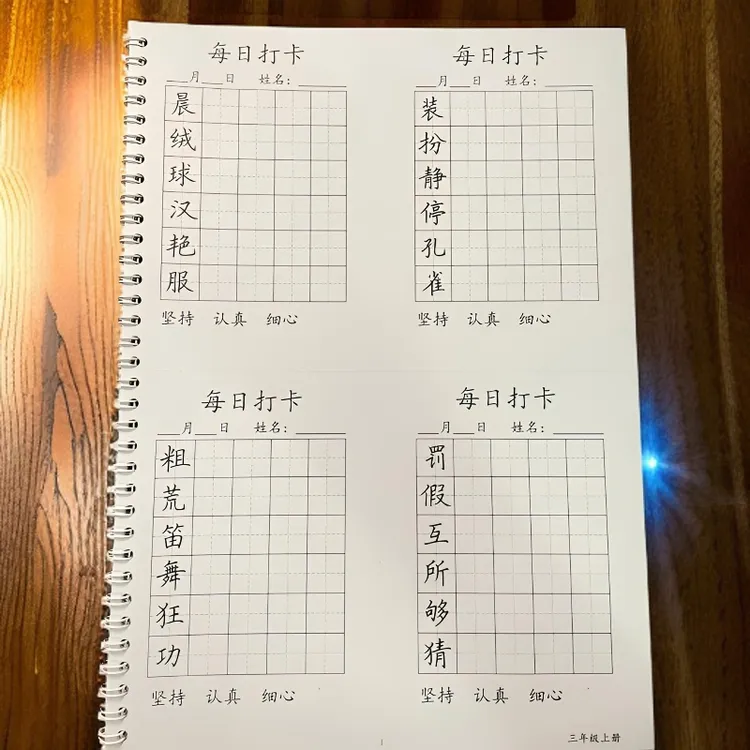 每日打卡
___月___日 姓名：______
晨
绒
球
汉
艳
服
坚持 认真 细心
每日打卡
___月___日 姓名：______
装
扮
静
停
孔
雀
坚持 认真 细心
每日打卡
___月___日 姓名：______
粗
荒
笛
舞
狂
功
坚持 认真 细心
每日打卡
___月___日 姓名：______
罚
假
互
所
够
猜
坚持 认真 细心
三年级上册